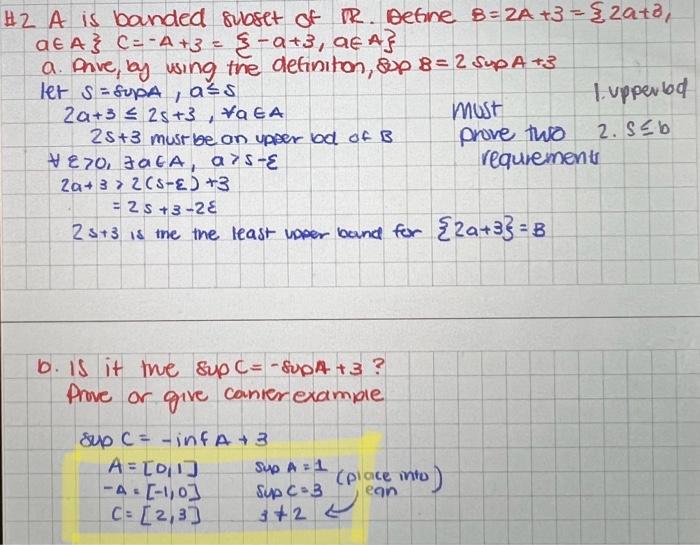 #2 A is banded subset of ℝ. Define B=2A+3={2a+3,
a∈A} C=-A+3={-a+3, a∈A}
a. Prove, by using the definiton, sup B=2 sup A+3
let s=supA, a≤s
1. upper bd
2a+3≤2s+3, ∀a∈A
must
2s+3 must be an upper bd of B
prove two
2. s≤b
∀ε>0, ∃a∈A, a>s-ε
requirements
2a+3>2(s-ε)+3
=2s+3-2ε
2s+3 is the the least upper bound for {2a+3}=B
b. Is it true sup C=-supA+3?
Prove or give canter example
sup C=-inf A+3
A=[0,1] sup A=1
(place into
-A=[-1,0] sup C=3
eqn)
C=[2,3] 3≠2